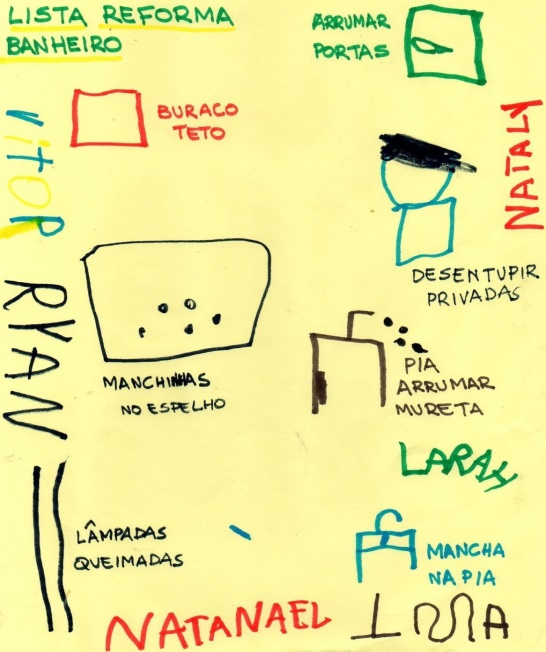 LISTA REFORMA
BANHEIRO
ARRUMAR
PORTAS
BURACO
TETO
VITOR
NATALY
DESENTUPIR
PRIVADAS
RYAN
MANCHINHAS
NO ESPELHO
PIA
ARRUMAR
MURETA
LARAH
LÂMPADAS
QUEIMADAS
MANCHA
NA PIA
NATANAEL